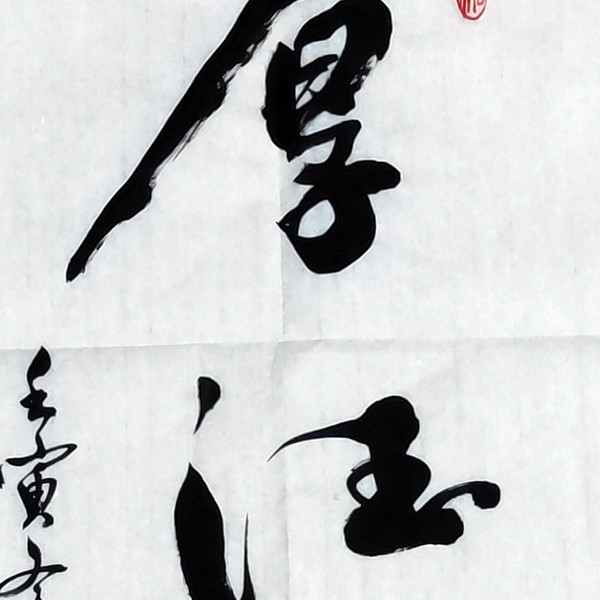 厚德
壬寅冬